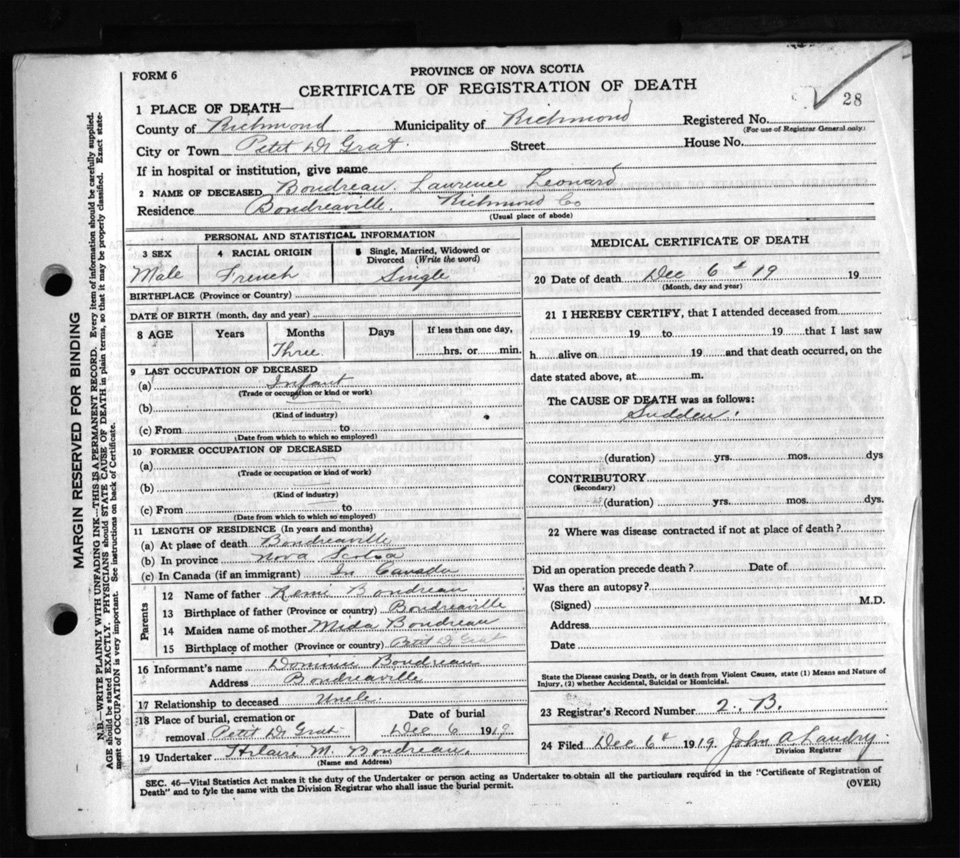 FORM 6
PROVINCE OF NOVA SCOTIA
CERTIFICATE OF REGISTRATION OF DEATH
28
1 PLACE OF DEATH—
County of Richmond Municipality of Richmond Registered No.
(For use of Registrar General only)
City or Town Petit De Grat Street House No.
If in hospital or institution, give name
2 NAME OF DECEASED Boudreau. Laurence Leonard
Residence Boudreauville. Richmond Co
(Usual place of abode)
PERSONAL AND STATISTICAL INFORMATION
3 SEX 4 RACIAL ORIGIN 5 Single, Married, Widowed or Divorced (Write the word)
Male French Single
BIRTHPLACE (Province or Country)
DATE OF BIRTH (month, day and year)
8 AGE Years Months Days If less than one day,
Three hrs. or min.
9 LAST OCCUPATION OF DECEASED
(a) Infant
(Trade or occupation or kind or work)
(b)
(Kind of industry)
(c) From to
(Date from which to which so employed)
10 FORMER OCCUPATION OF DECEASED
(a)
(Trade or occupation or kind of work)
(b)
(Kind of industry)
(c) From to
(Date from which to which so employed)
11 LENGTH OF RESIDENCE (In years and months)
(a) At place of death Boudreauville
(b) In province Nova Scotia
(c) In Canada (if an immigrant) In Canada
Parents
12 Name of father Remi Boudreau
13 Birthplace of father (Province or country) Boudreauville
14 Maiden name of mother Meda Boudreau
15 Birthplace of mother (Province or country) Petit De Grat
16 Informant's name Dominic Boudreau
Address Boudreauville
17 Relationship to deceased Uncle.
18 Place of burial, cremation or removal Petit De Grat
Date of burial
Dec 6 1919
19 Undertaker Hilaire M. Boudreau.
(Name and Address)
MEDICAL CERTIFICATE OF DEATH
20 Date of death Dec 6th 19 19
(Month, day and year)
21 I HEREBY CERTIFY, that I attended deceased from
19 to 19 that I last saw
h alive on 19 and that death occurred, on the
date stated above, at m.
The CAUSE OF DEATH was as follows:
Sudden.
(duration) yrs. mos. dys
CONTRIBUTORY
(Secondary)
(duration) yrs. mos. dys.
22 Where was disease contracted if not at place of death?
Did an operation precede death? Date of
Was there an autopsy?
(Signed) M.D.
Address
Date
State the Disease causing Death, or in death from Violent Causes, state (1) Means and Nature of
Injury, (2) whether Accidental, Suicidal or Homicidal.
23 Registrar's Record Number 2. B.
24 Filed Dec 6th 1919. John A. Landry
Division Registrar
SEC. 46—Vital Statistics Act makes it the duty of the Undertaker or person acting as Undertaker to obtain all the particulars required in the "Certificate of Registration of
Death" and to fyle the same with the Division Registrar who shall issue the burial permit.
(OVER)
MARGIN RESERVED FOR BINDING
N.B.—WRITE PLAINLY WITH UNFADING INK—THIS IS A PERMANENT RECORD. Every item of information should be carefully supplied.
AGE should be stated EXACTLY. PHYSICIANS should STATE CAUSE OF DEATH in plain terms, so that it may be properly classified. Exact state-
ment of OCCUPATION is very important. See instructions on back of Certificate.